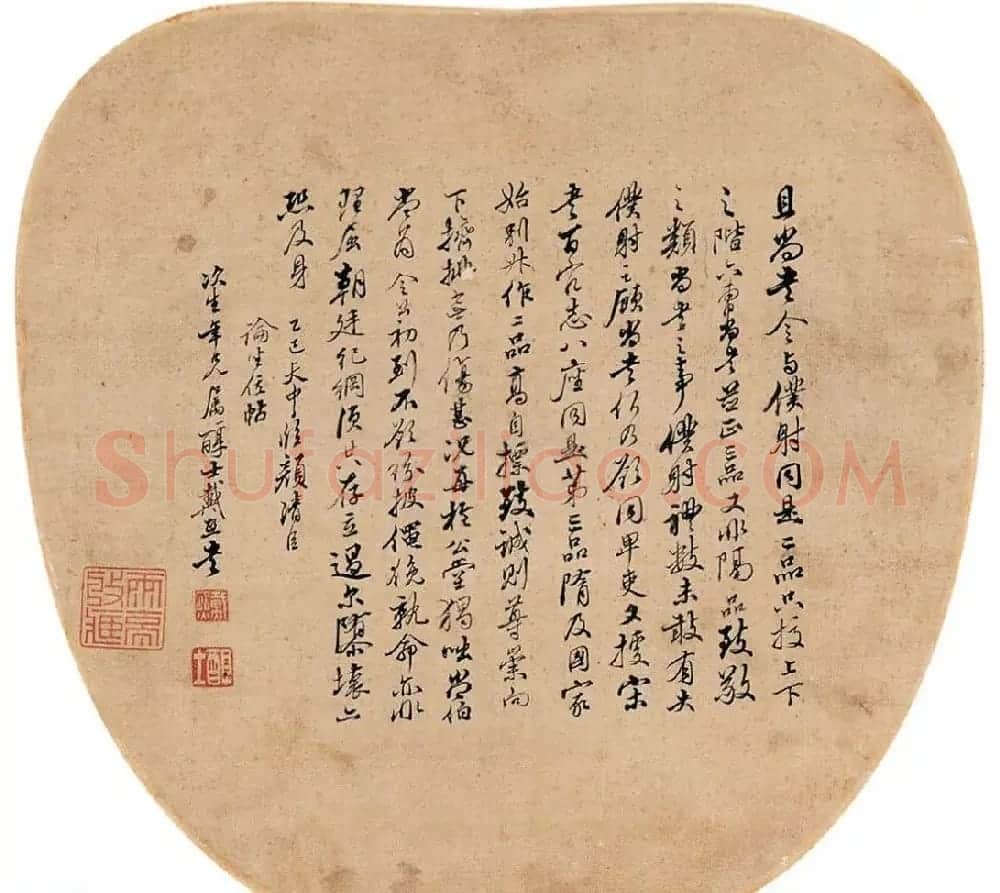 且尚書令與僕射同是二品只校上下
之階六曹尚書並正三品又非隔品致敬
之類尚書之事僕射禮數未敢有失
僕射之顧尚書何乃欲同卑吏又據宋
書百官志八座同是第三品隋及國家
始別升作二品高自標致誠則尊崇向
下擠排無乃傷甚況再於公堂獨咄常伯
當為令公初到不欲紛披僶俛就命亦非
理屈朝廷紀綱須共存立過尔隳壞亦
恐及身
乙巳天中臨顏清臣
論坐位帖
次生年兄屬醇士戴熙書
戴熙
醇士
Shufaziliao.COM